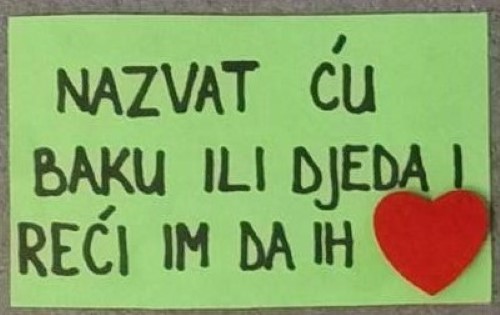 NAZVAT ĆU
BAKU ILI DJEDA I
REĆI IM DA IH